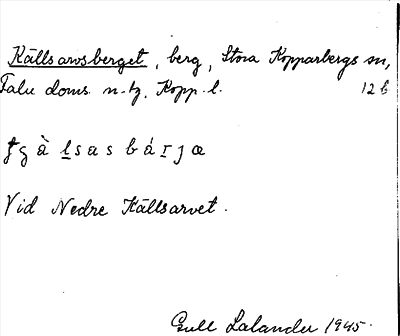 Källsarvsberget, berg, Stora Kopparbergs sn,
Falu doms. n-tg. Kopp. l. 12 b
Vid Nedre Källsarvet.
Gull Lalander 1945.